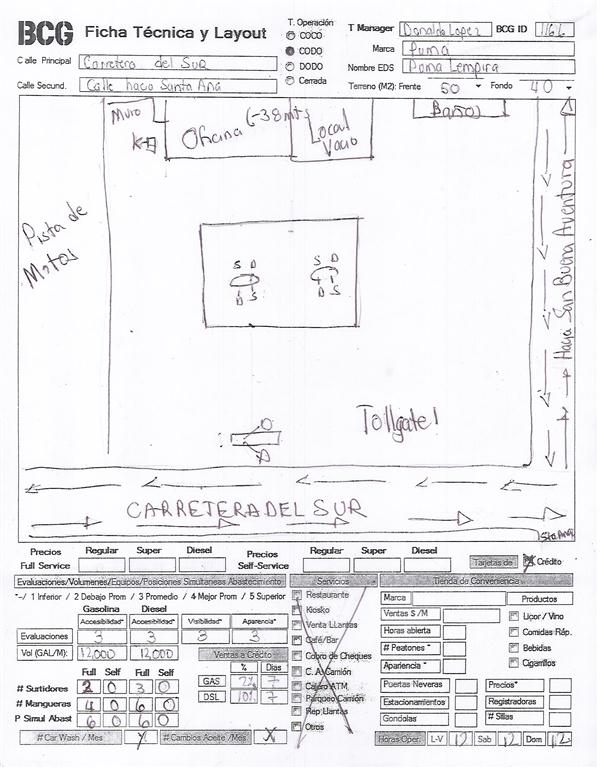 BCG Ficha Técnica y Layout
T. Operación
COCO
CODO
DODO
Cerrada
T Manager Donaldo Lopez BCG ID 1166
Marca Puma
Nombre EDS Poma Lempira
Calle Principal Carretera del Sur
Calle Secund. Calle haco Santa Ana
Terreno (M2): Frente 50 Fondo 40
Muro
Oficina (-38mts)
Local Vacio
Baños
Pista de Motos
S D
D S
S D
D S
Haca San Buena Aventura
Tollgate!
CARRETERA DEL SUR
Sta Ana
Precios Full Service
Regular Super Diesel
Precios Self-Service
Regular Super Diesel
Tarjetas de Crédito
Evaluaciones/Volumenes/Equipos/Posiciones Simultaneas Abastecimiento
*-/ 1 Inferior / 2 Debajo Prom / 3 Promedio / 4 Mejor Prom / 5 Superior
Gasolina Diesel
Accesibilidad* Accesibilidad* Visibilidad* Aparencia*
Evaluaciones 3 3 3 3
Vol (GAL/M): 12,000 12,000
Ventas a Crédito
% Dias
GAS 2% 7
DSL 10% 7
Full Self Full Self
# Surtidores 2 0 3 0
# Mangueras 4 0 6 0
P Simul Abast 6 0 6 0
# Car Wash / Mes
# Cambios Aceite /Mes X
Servicios
Restaurante
Kiosko
Venta LLantas
Café/Bar
Cobro de Cheques
C. A. Camión
Cajero ATM
Parqueo Camión
Rep.Llantas
Otros
Tienda de Conveniencia
Marca
Productos
Ventas $ /M
Horas abierta
# Peatones *
Apariencia *
Liqor / Vino
Comidas Ráp.
Bebidas
Cigarrilos
Puertas Neveras
Precios*
Estacionamientos
Registradoras
Gondolas
# Sillas
Horas Oper. L-V 12 Sab 12 Dom 12